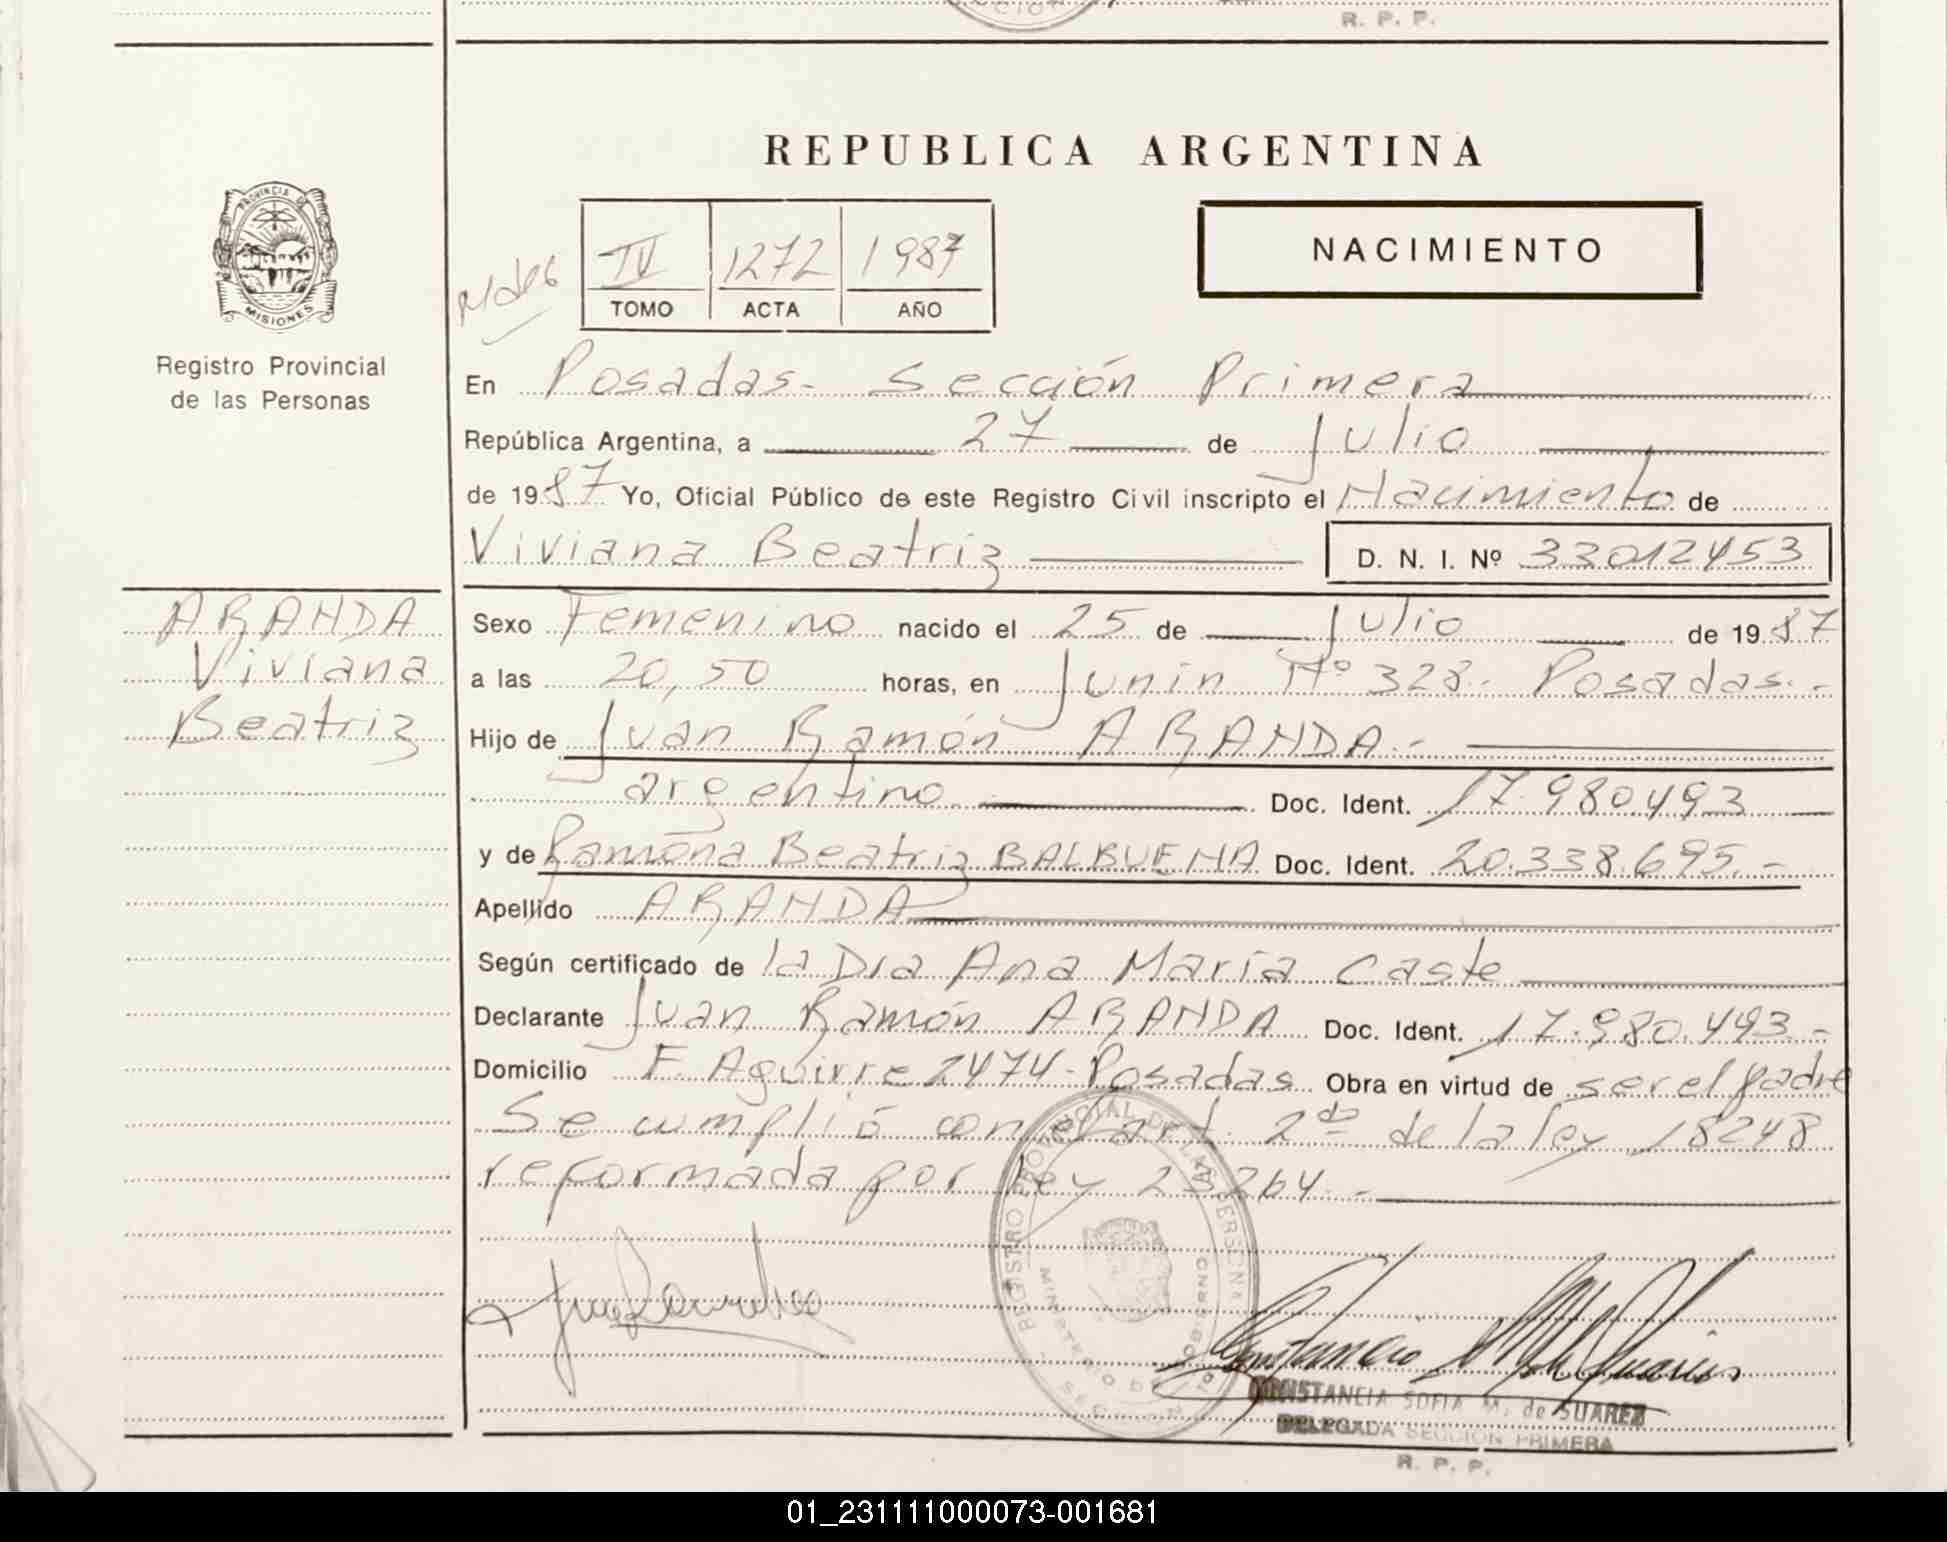 CION
R. P. P.
REPUBLICA ARGENTINA
PROVINCIA DE
MISIONES
Registro Provincial
de las Personas
IV 1272 1987
TOMO ACTA AÑO
NACIMIENTO
En Posadas- Sección Primera
República Argentina, a 27 de Julio
de 1987 Yo, Oficial Público de este Registro Civil inscripto el Nacimiento de
Viviana Beatriz D. N. I. Nº 33012453
ARANDA
Viviana
Beatriz
Sexo Femenino nacido el 25 de Julio de 1987
a las 20,50 horas, en Junin Nº 328.- Posadas.-
Hijo de Juan Ramón ARANDA.-
argentino Doc. Ident. 17.980.493
y de Ramona Beatriz BALBUENA Doc. Ident. 20.338.695.-
Apellido ARANDA
Según certificado de la Dra Ana María Caste
Declarante Juan Ramón ARANDA Doc. Ident. 17.980.493.-
Domicilio F. Aguirre 2474-Posadas Obra en virtud de ser el padre
Se cumplió con el art. 2do de la ley 18248
reformada por ley 23264.-
REGISTRO PROVINCIAL DE LAS PERSONAS
MINISTERIO DE GOBIERNO
SECCION
CONSTANCIA SOFIA M. de SUAREZ
DELEGADA SECCION PRIMERA
R. P. P.
01_231111000073-001681